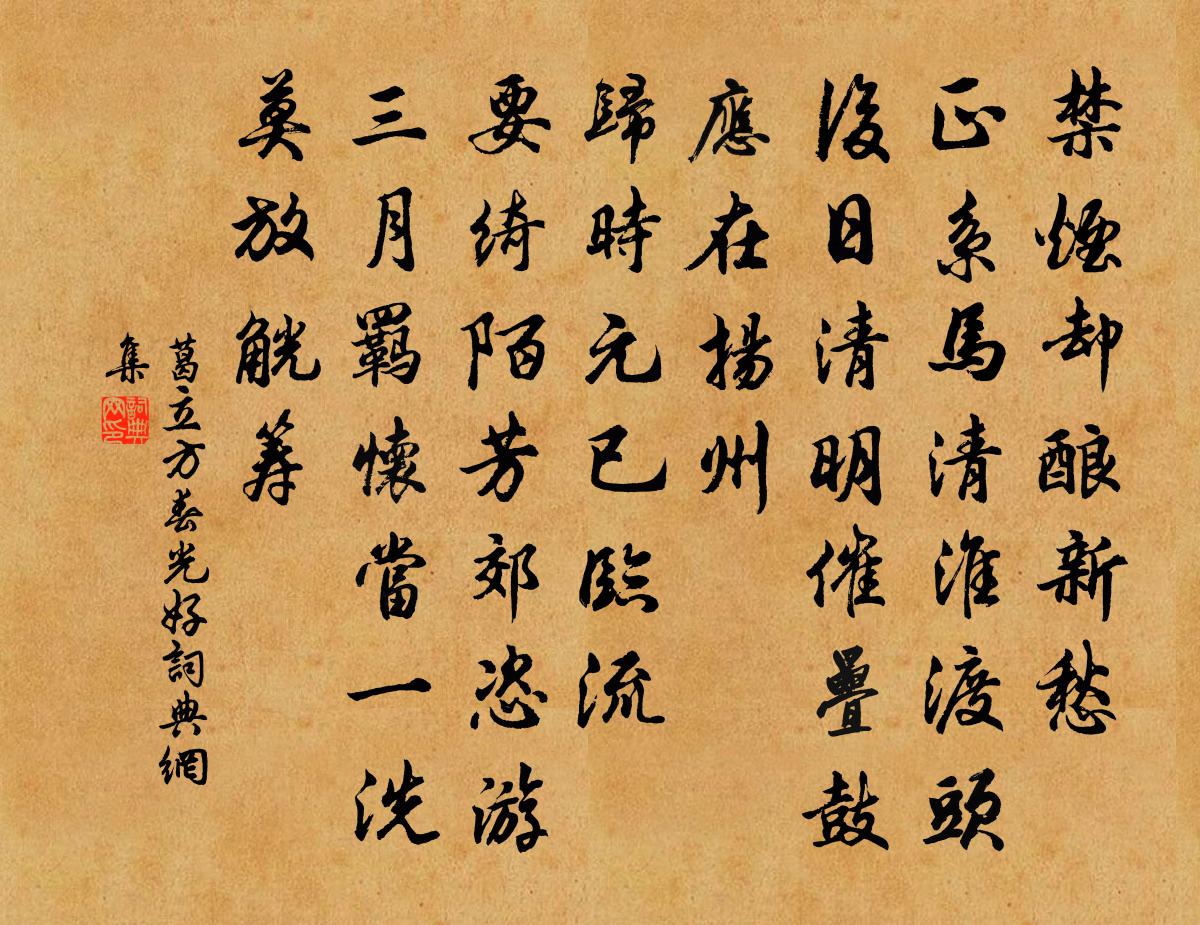 禁煙却酿新愁
正系馬清淮渡頭
後日清明催疊鼓
應在揚州
歸時元已臨流
要綺陌芳郊恣游
三月羈懷當一洗
莫放觥筹
葛立方春光好詞典網
集
詞典網印